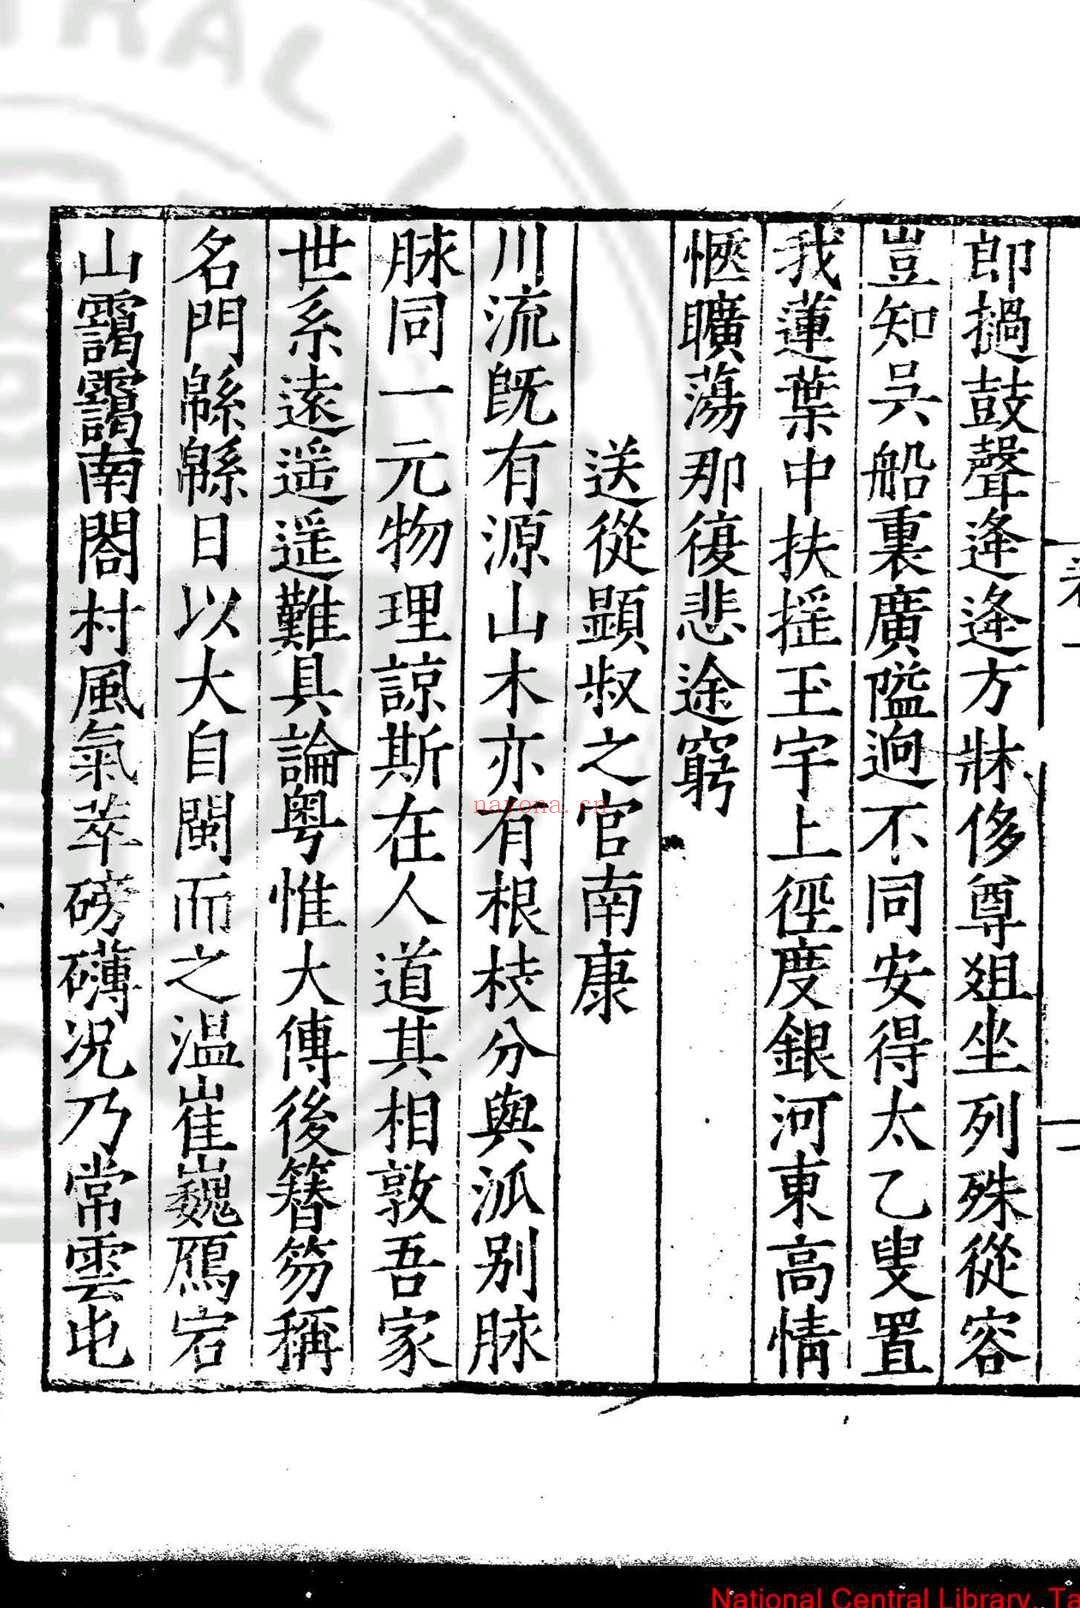 郎撾鼓聲逄逄方牀侈尊爼坐列殊從容
豈知呉船裏廣隘逈不同安得太乙叟置
我蓮葉中扶摇玉宇上徑度銀河東高情
愜曠蕩那復悲途窮
送從顯叔之官南康
川流旣有源山木亦有根枝分與派别脉
脉同一元物理諒斯在人道其相敦吾家
世系遠遥遥難具論粤惟大傳後簪笏稱
名門緜緜日以大自閩而之温崔巍鴈宕
山靄靄南閤村風氣萃磅礴况乃常雲屯
nayona.cn
National Central Library, Ta